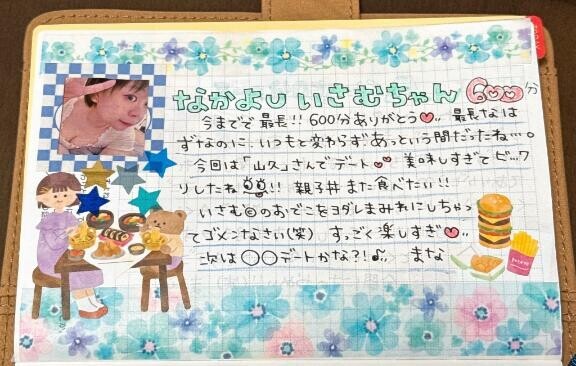 なかよし いさむちゃん 600分
今までで 最長!! 600分ありがとう♡.. 最長なは
ずなのに、いつもと変わらず あっという間だったね…。
今回は「山久」さんでデート♡♡ 美味しすぎて ビ…ック
リしたね!! 親子丼 また食べたい!!
いさむ◎のおでこをヨダレまみれにしちゃっ
てゴメンなさい(笑) すっごく楽しすぎ♡..
次は ○○デートかな?!♪.. まな